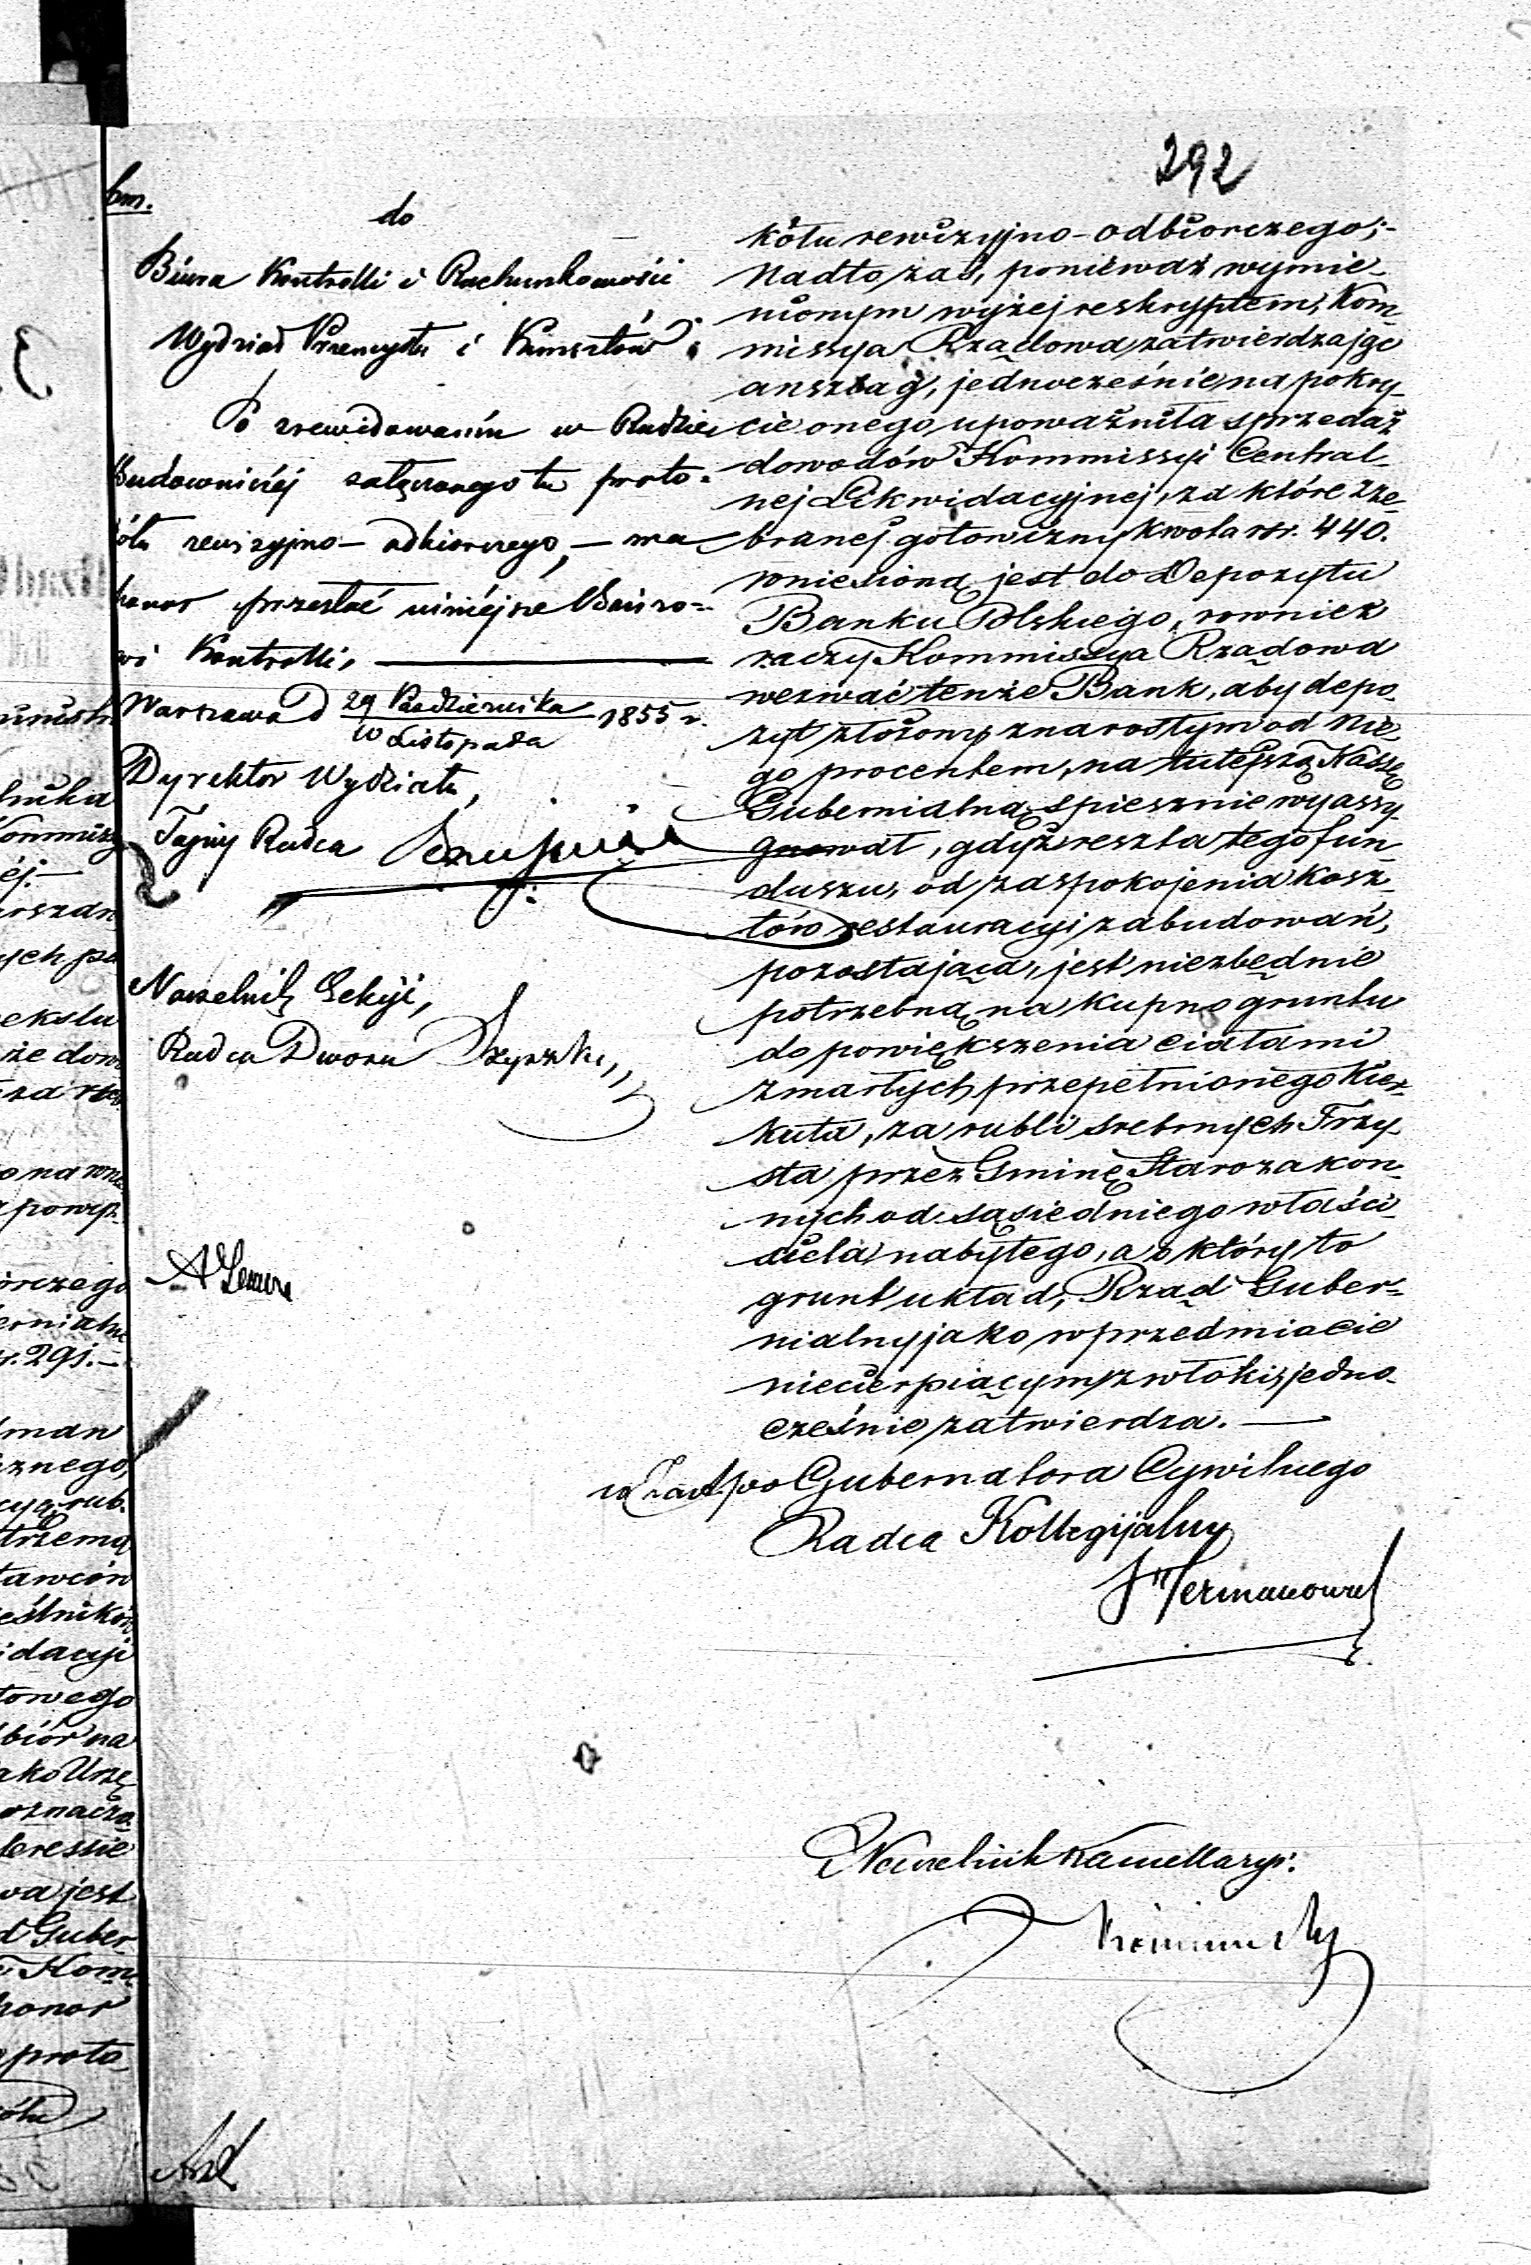 292
do
Biura Kontrolli i Rachunkowości
Wydział Przemysłu i Kunsztów.
Po zrewidowaniu w Radzie
Budowniczéj załączonego tu proto-
kółu rewizyjno-odbiorczego, — ma
honor przesłać niniejsze Biuro=
wi Kontrolli, —
Warszawa d 29 Października 1855 r.
10 Listopada
Dyrektor Wydziału,
Tajny Radca
Naczelnik Sekcyi,
Radca Dworu
kółu rewizyjno-odbiorczego;-
Nadto zaś, poniéważ wymie-
nionym wyżej reskryptem, Kom-
missya Rządowa zatwierdzając
anszlag, jednocześnie na pokry-
cie onego upoważniła sprzedaż
dowodów Kommissyi Central-
nej Likwidacyjnej, za które ze-
branej gotowizny kwota rsr. 440.
wniesioną jest do Depozytu
Banku Polskiego, rownież
raczy Kommissya Rządowa
wezwać tenże Bank, aby depo-
zyt złożony z narosłym od nie-
go procentem, na tutejszą Kassę
Gubernialną spiesznie wyassy-
gnował, gdyż reszta tego fun-
duszu, od zaspokojenia kosz-
tów restauracyi zabudowań,
pozostająca, jest niezbędnie
potrzebną na kupno gruntu
do powiększenia ciałami
zmarłych przepełnionego Kier-
kuta, za rubli srebrnych Trzy-
sta przez Gminę Starozakon-
nych od sąsiedniego właści-
ciela nabytego, a o który to
grunt układ, Rząd Guber=
nialny jako w przedmiocie
niecierpiącym zwłoki, jedno-
cześnie zatwierdza. —
Gubernatora Cywilnego
Radca Kollegijalny
Naczelnik Kancellaryi.